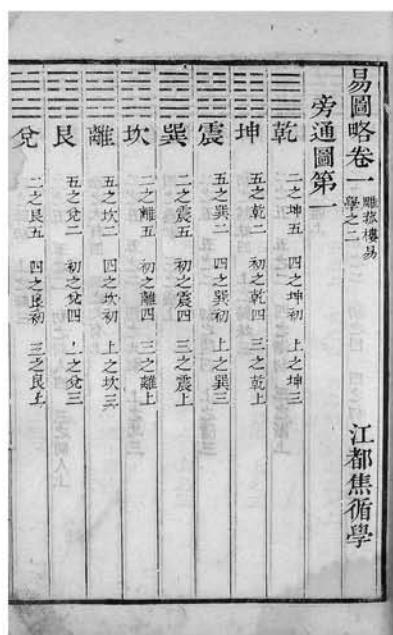 易圖略卷一 雕菰樓易學之二 江都焦循學
旁通圖第一
乾 二之坤五 四之坤初 上之坤三
坤 五之乾二 初之乾四 三之乾上
震 五之巽二 四之巽初 上之巽三
巽 二之震五 初之震四 三之震上
坎 二之離五 初之離四 三之離上
離 五之坎二 四之坎初 上之坎三
艮 五之兌二 初之兌四 上之兌三
兌 二之艮五 四之艮初 三之艮上